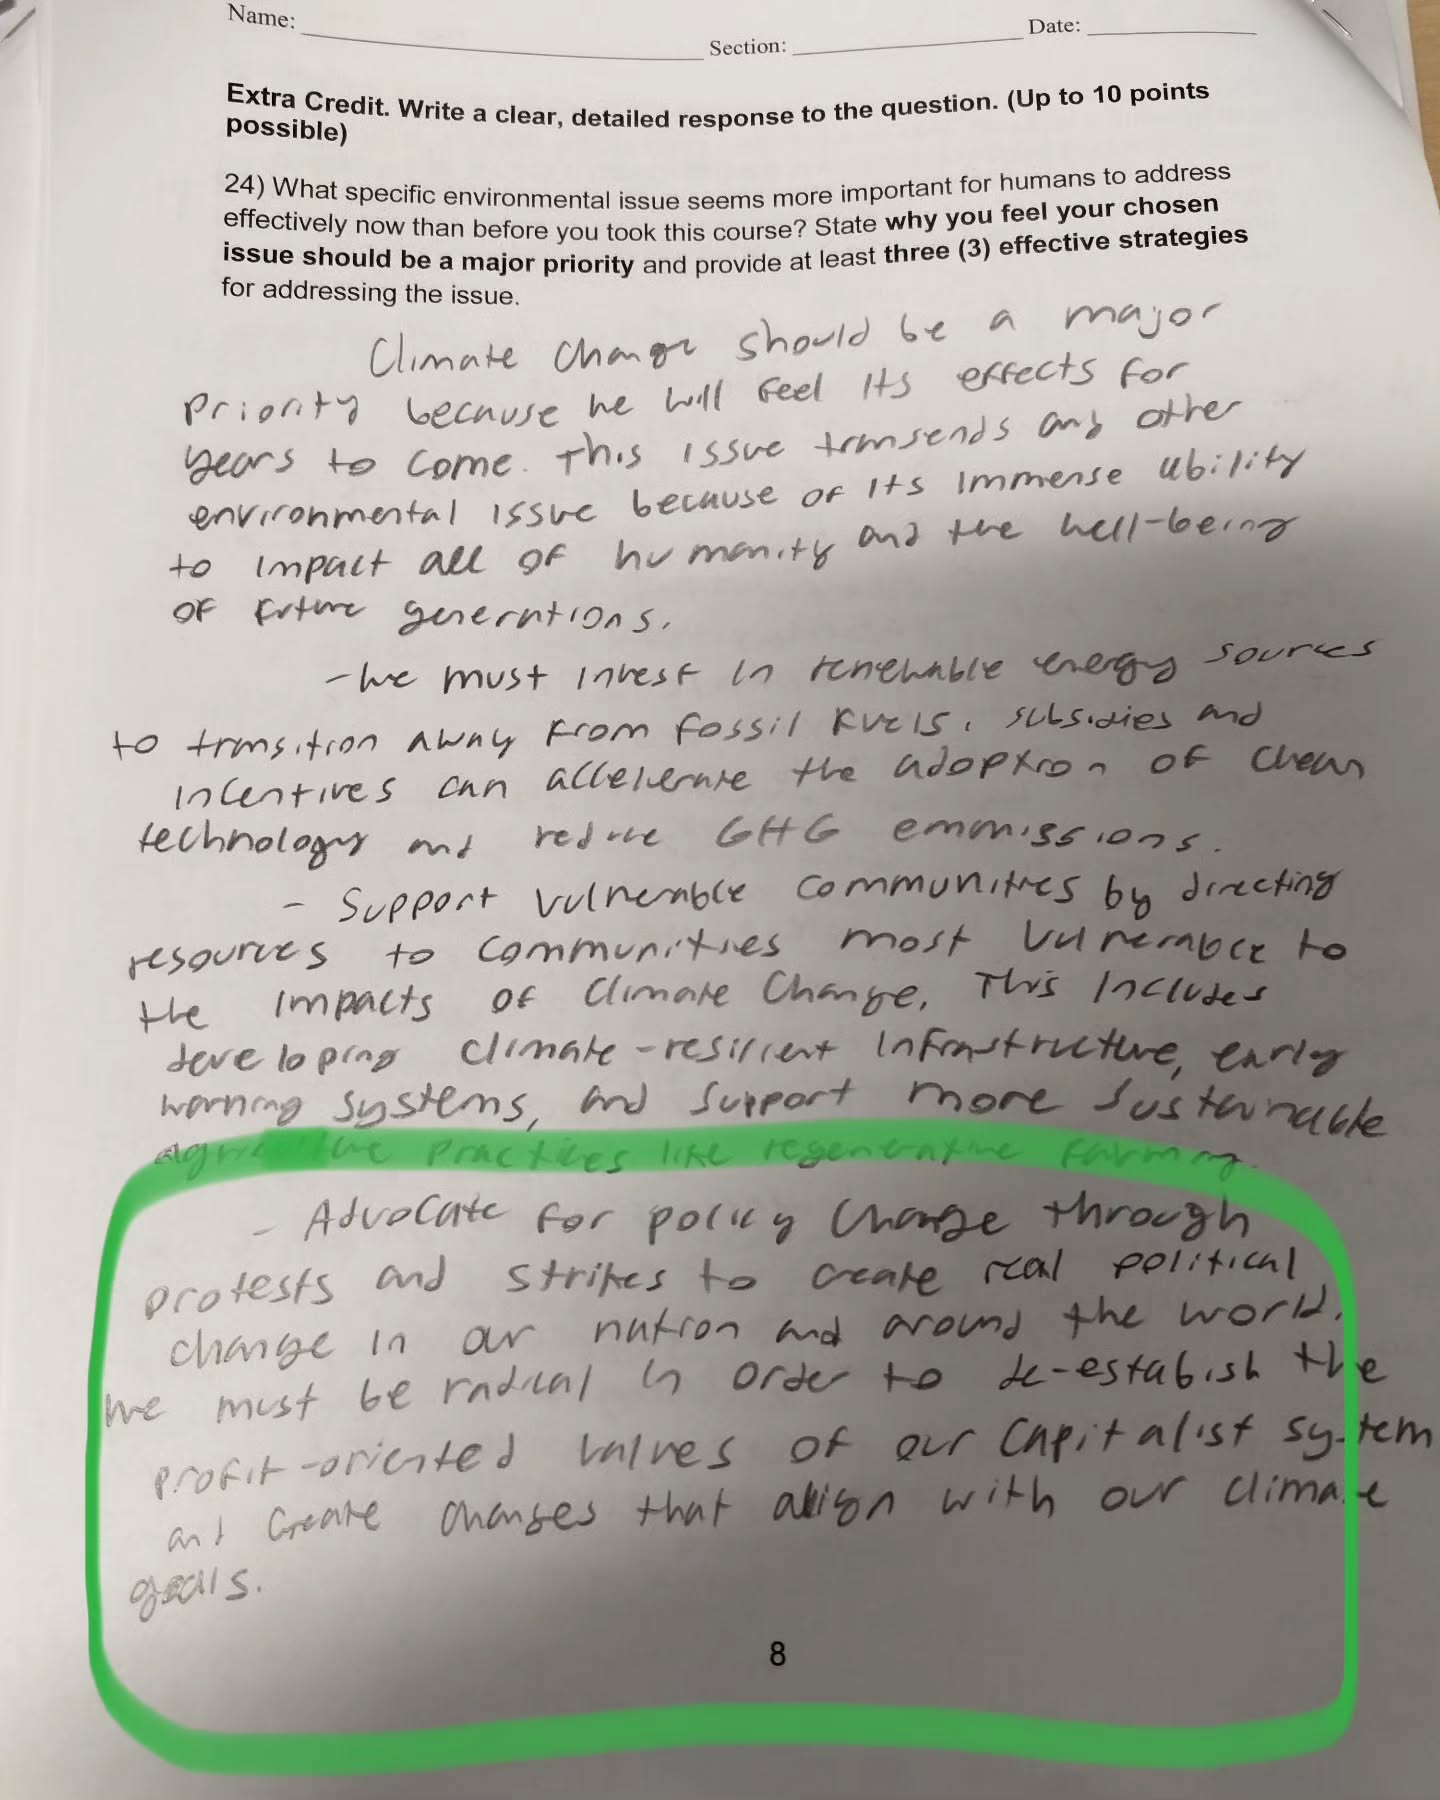 Name:
Section:
Date:
Extra Credit. Write a clear, detailed response to the question. (Up to 10 points
possible)
24) What specific environmental issue seems more important for humans to address
effectively now than before you took this course? State why you feel your chosen
issue should be a major priority and provide at least three (3) effective strategies
for addressing the issue.
Climate Change should be a major
Priority because we will feel its effects for
years to come. This issue transends any other
environmental issue because of its immense ability
to impact all of humanity and the well-being
of future generations.
-We must invest in renewable energy sources
to transition away from fossil fuels. subsidies and
incentives can accelerate the adoption of clean
technology and reduce GHG emmissions.
- Support vulnerable communities by directing
resources to communities most vulnerable to
the impacts of Climate Change. This includes
developing climate-resilient infrastructure, early
warning systems, and support more sustainable
practices like regenerative farming.
- Advocate for policy change through
protests and strikes to create real political
change in our nation and around the world.
We must be radical in order to de-estabish the
profit-oriented values of our capitalist system
and create changes that align with our climate
goals.
8